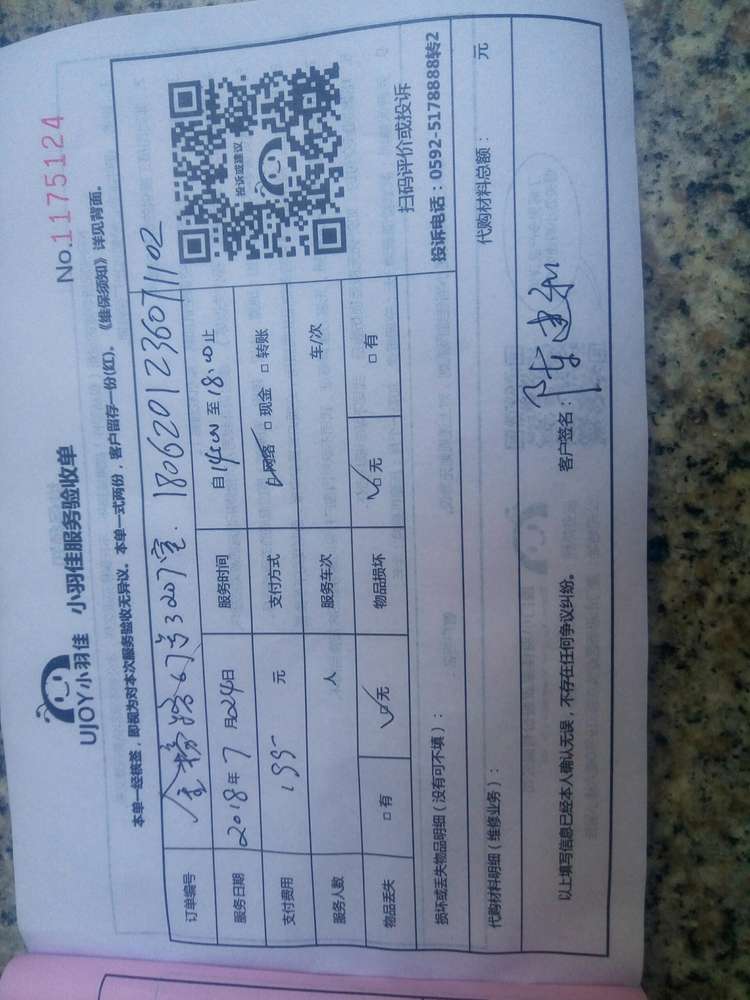 UJOY小羽佳 小羽佳服务验收单
No.1175124
本单一经核签，即视为对本次服务验收无异议。本单一式两份，客户留存一份(红)。《维保须知》详见背面。
订单编号 金榜路63号3207室. 180620123607 1102
服务日期 2018年7月24日 服务时间 自14:00至18:00止
支付费用 195- 元 支付方式 ☑网络 □现金 □转账
服务人数 人 服务车次 车/次
物品丢失 □有 ☑无 物品损坏 ☑无 □有
投诉或建议
扫码评价或投诉
投诉电话：0592-5178888转2
损坏或丢失物品明细（没有可不填）：
代购材料明细（维修业务）： 代购材料总额： 元
以上填写信息已经本人确认无误，不存在任何争议纠纷。 客户签名：